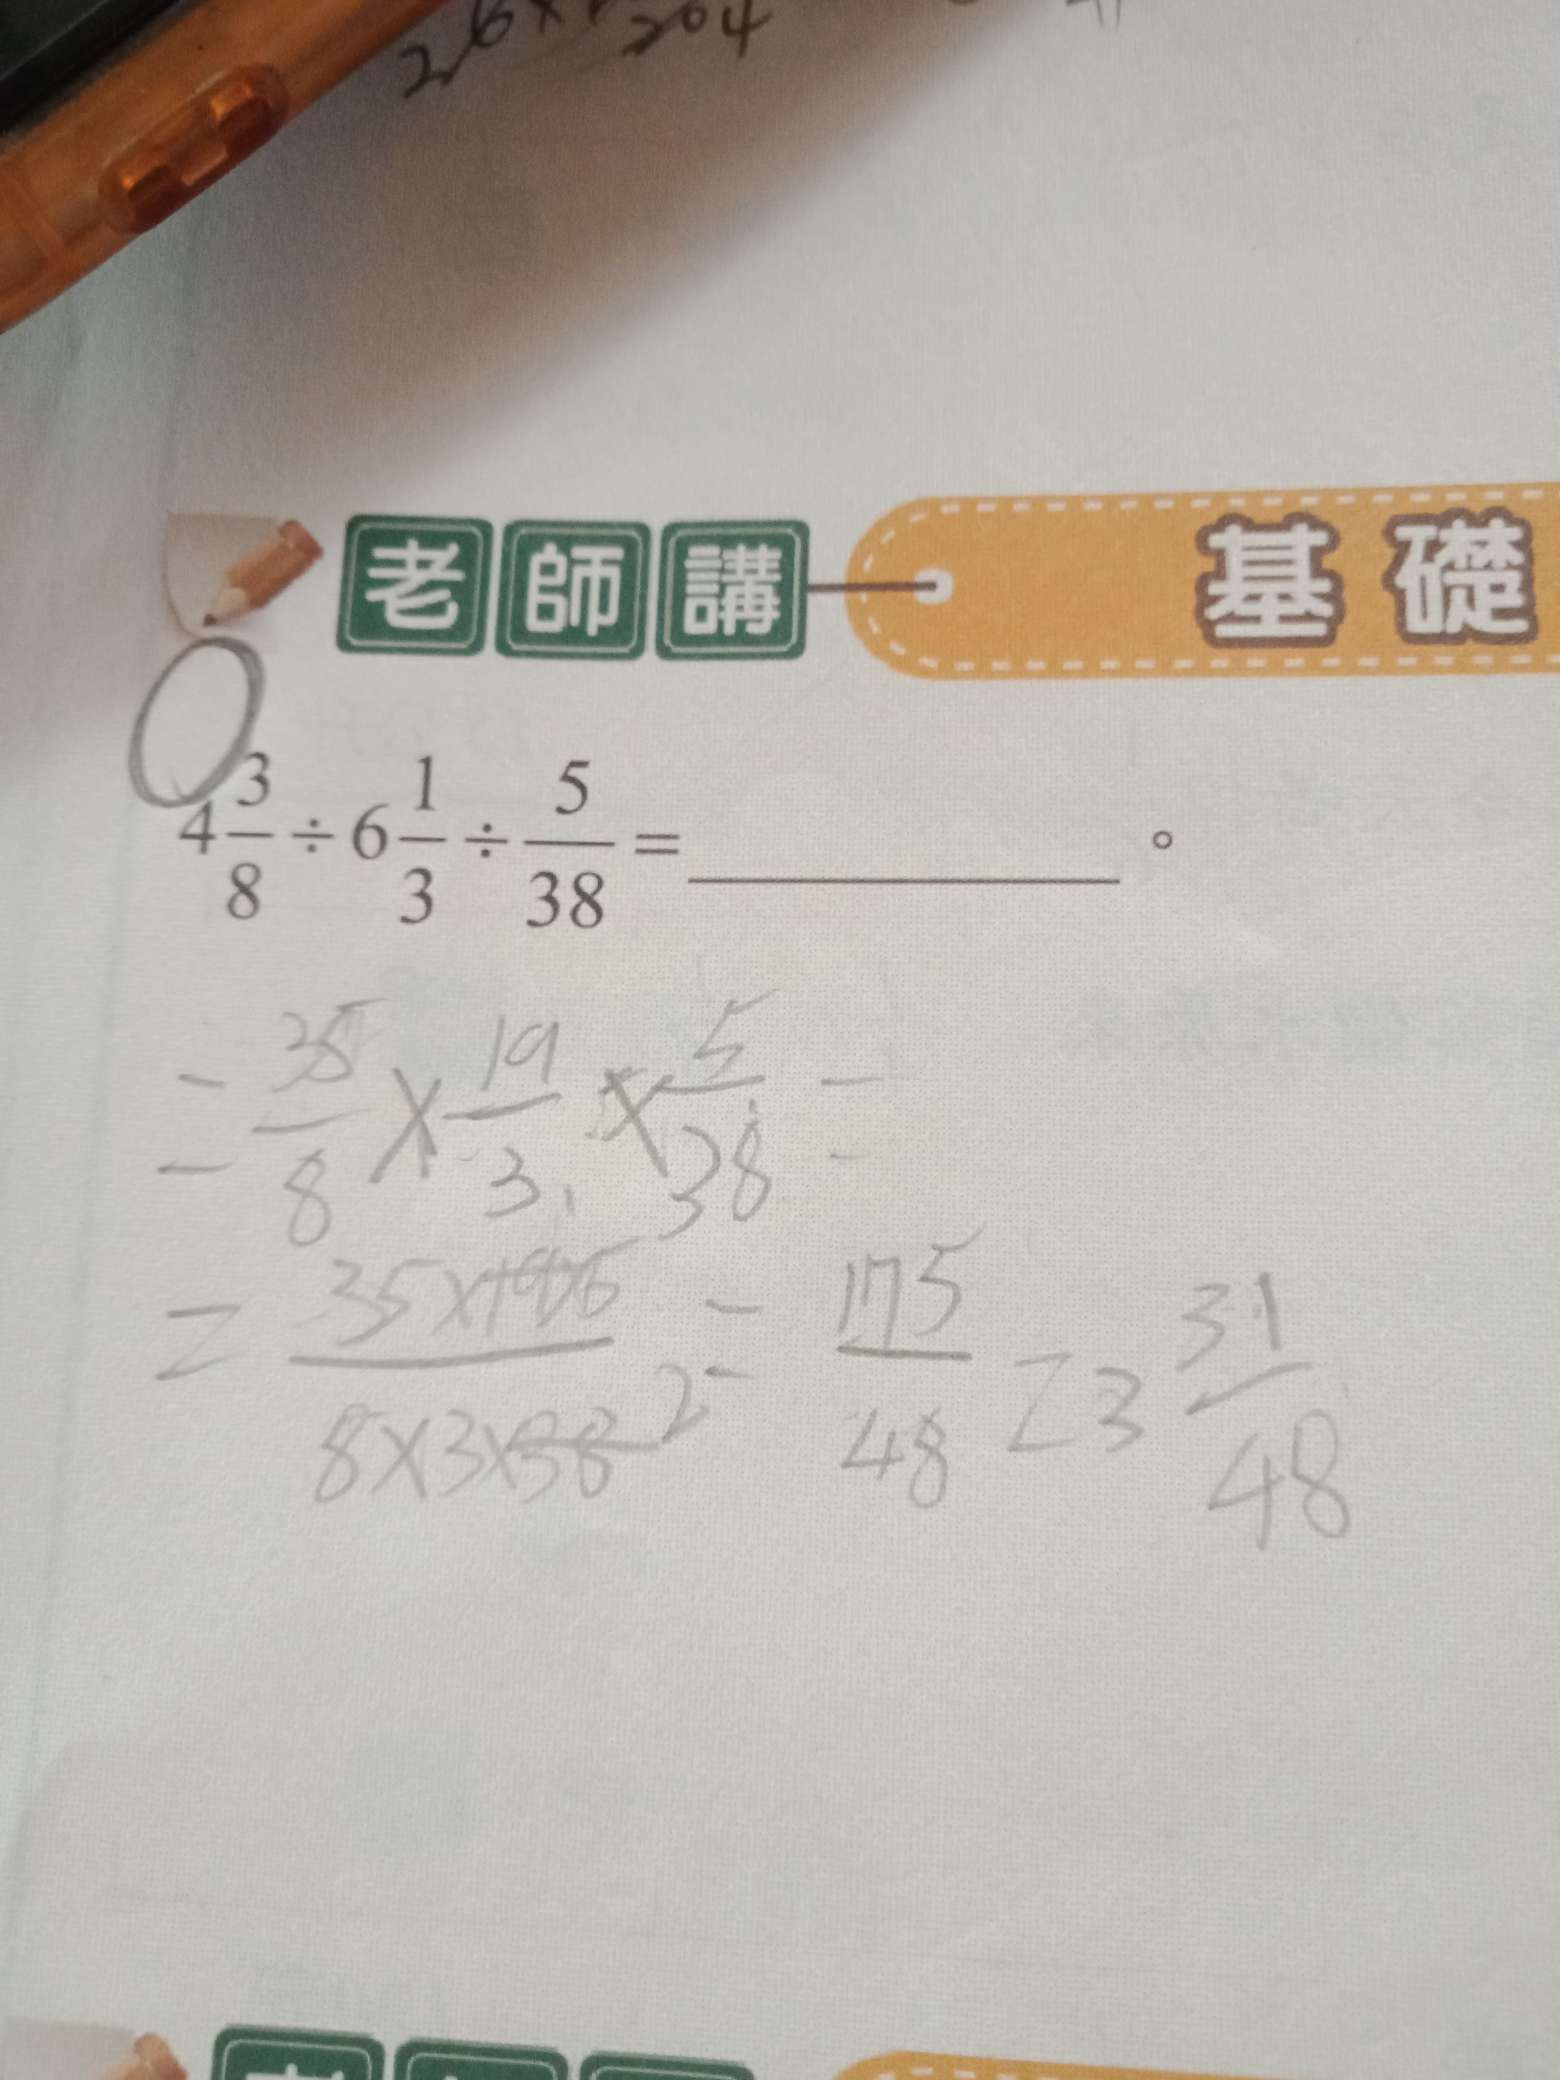 204
老師講 基礎
4 3/8 ÷ 6 1/3 ÷ 5/38 = ________ 。
= 35/8 × 19/3 × 5/38 =
= 35×19×5 / 8×3×38 2 = 175/48 = 3 31/48